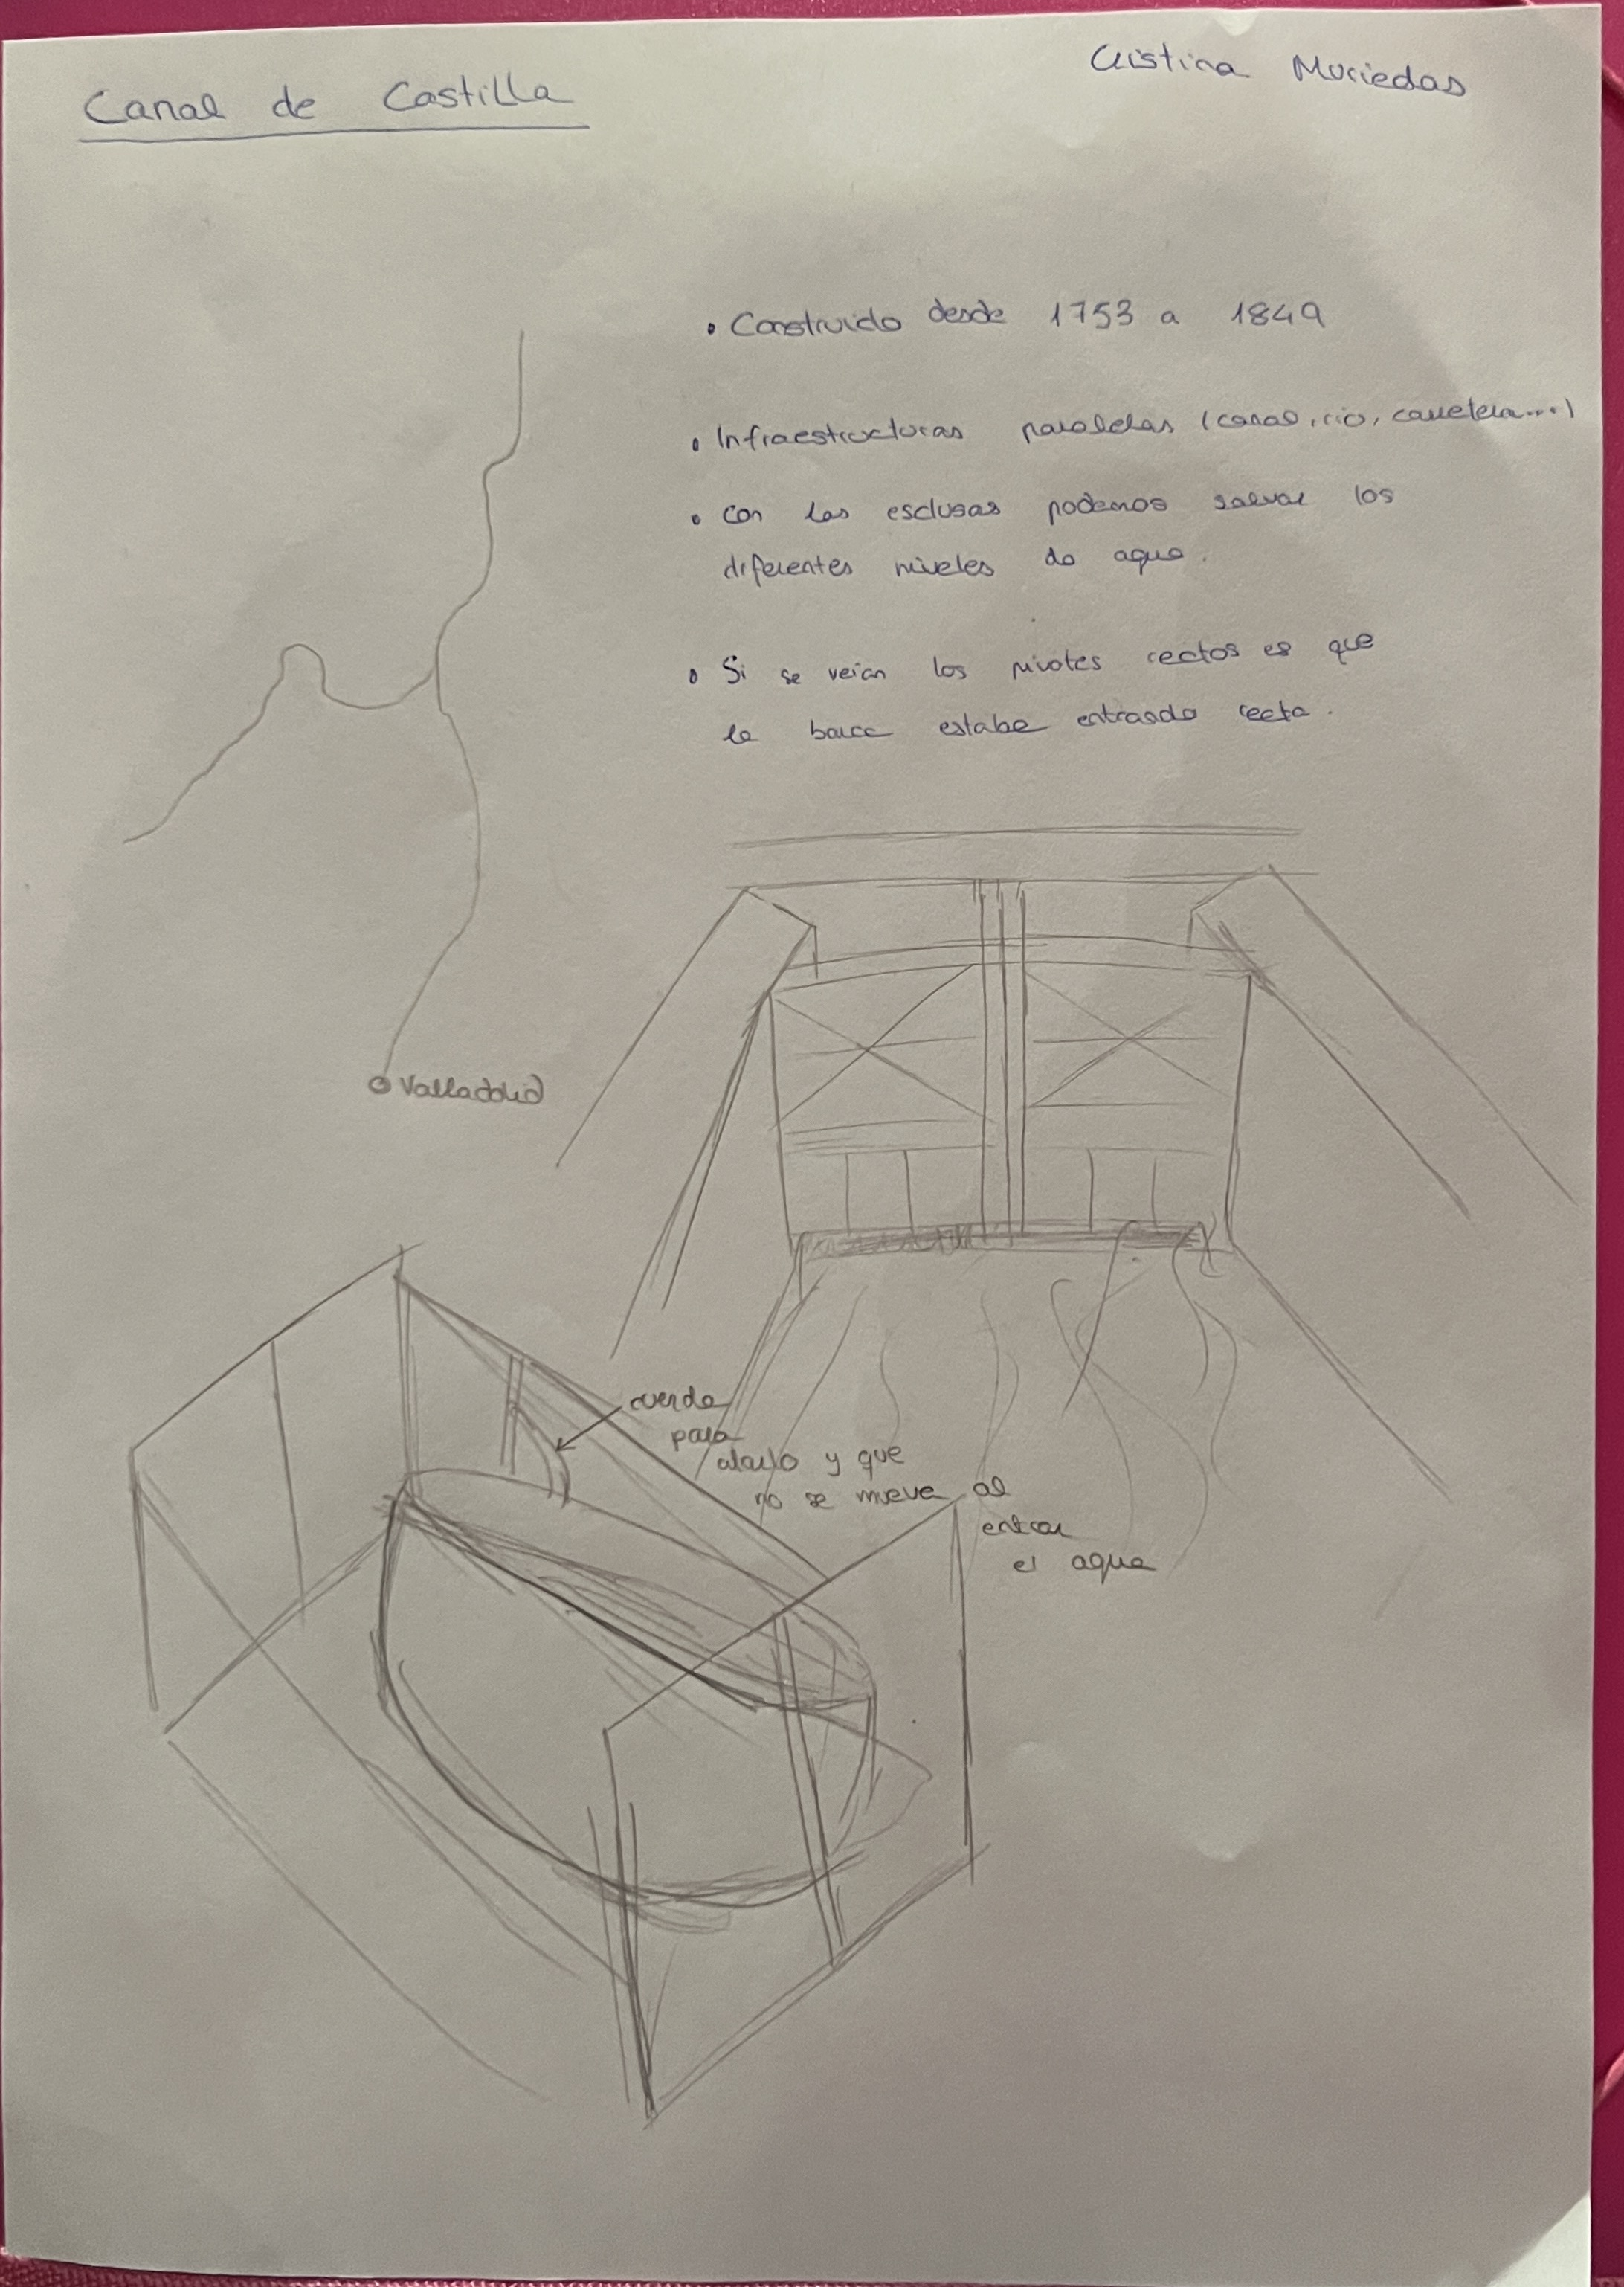 Canal de Castilla
Cristina Muriedas
• Construido desde 1753 a 1849
• Infraestructuras paralelas (canal, rio, carretera...)
• Con las esclusas podemos salvar los
diferentes niveles de agua.
• Si se veian los pivotes rectos es que
la barca estaba entrando recta.
Valladolid
cuerda
para
atarlo y que
no se mueva al
entrar
el agua